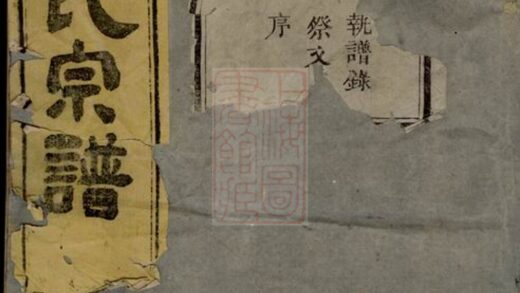 執譜錄
祭文
序
氏宗譜